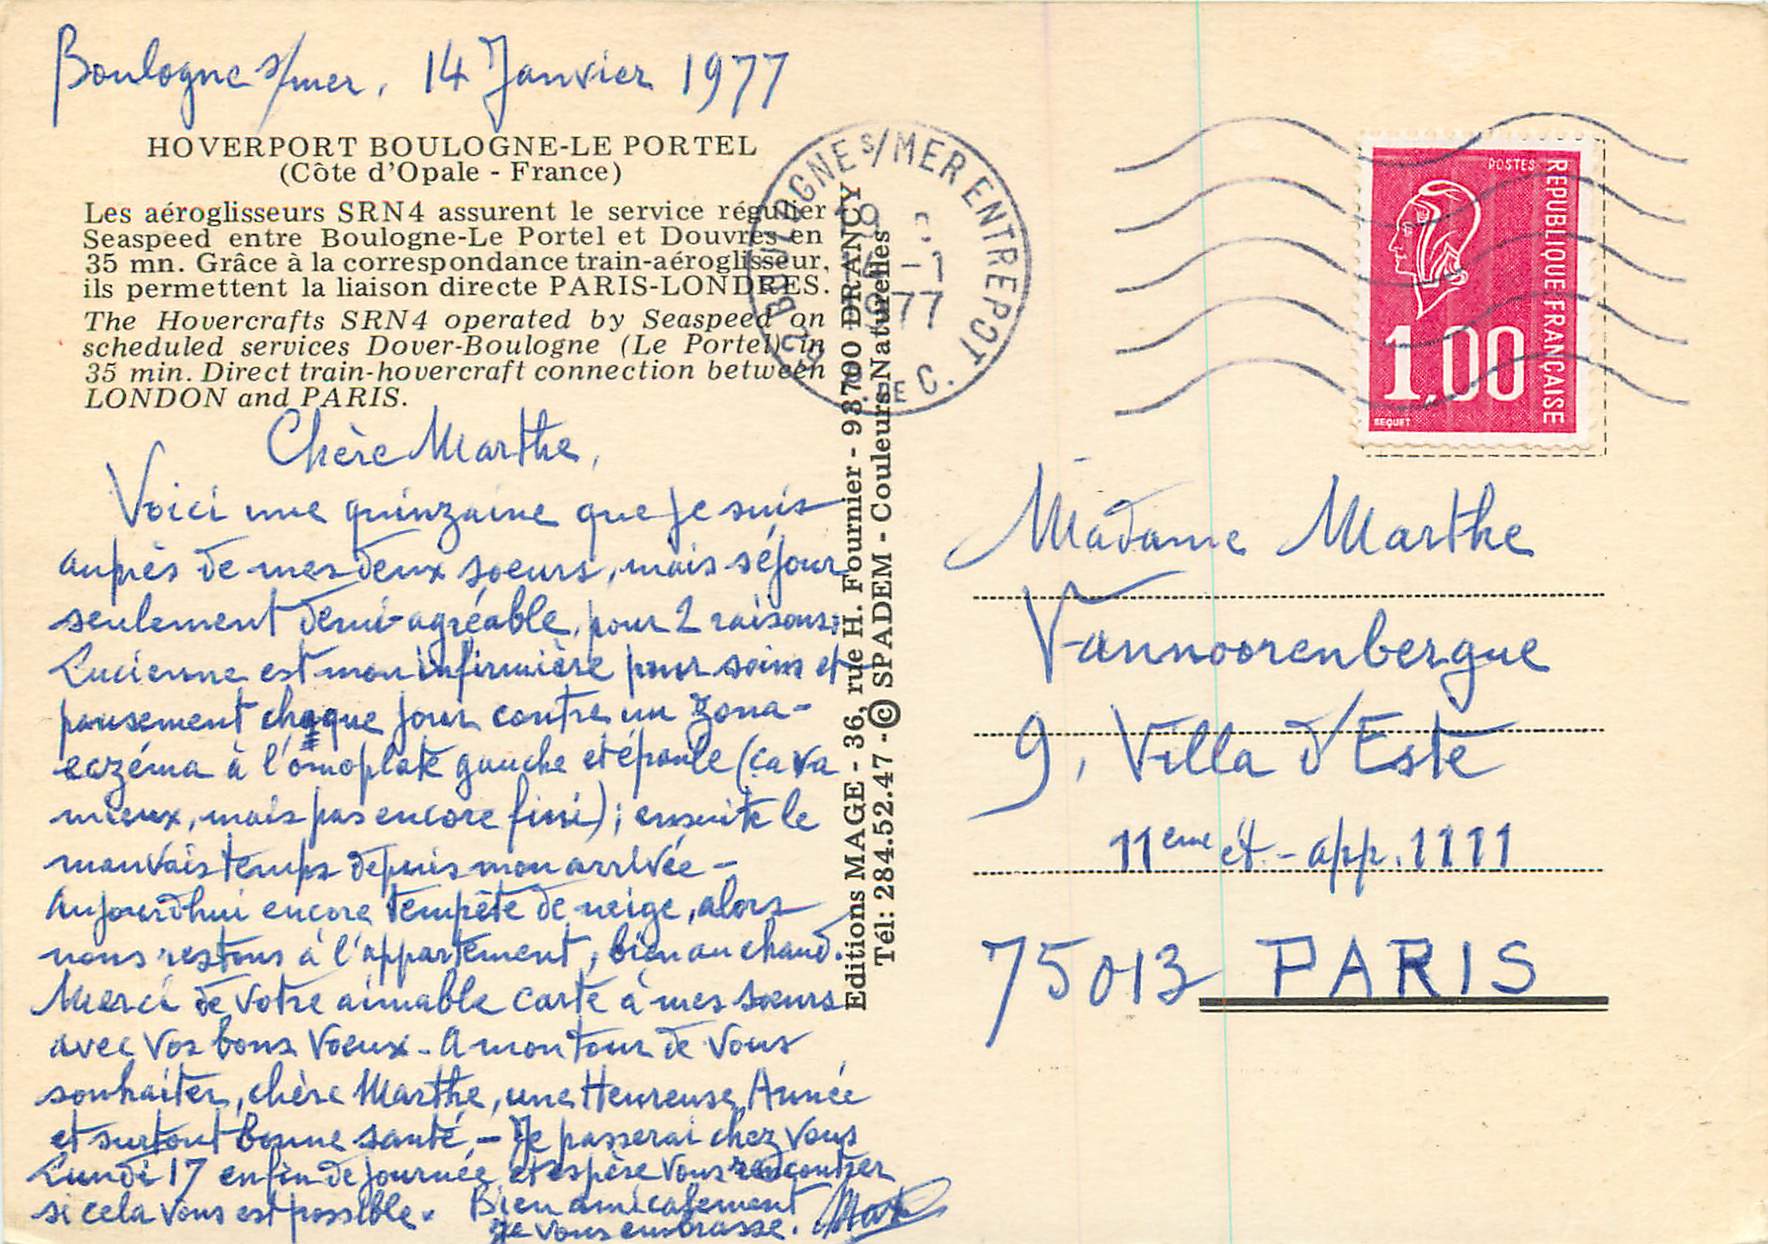 Boulogne s/mer, 14 Janvier 1977
HOVERPORT BOULOGNE-LE PORTEL
(Côte d'Opale - France)
Les aéroglisseurs SRN4 assurent le service régulier
Seaspeed entre Boulogne-Le Portel et Douvres en
35 mn. Grâce à la correspondance train-aéroglisseur,
ils permettent la liaison directe PARIS-LONDRES.
The Hovercrafts SRN4 operated by Seaspeed on
scheduled services Dover-Boulogne (Le Portel) in
35 min. Direct train-hovercraft connection between
LONDON and PARIS.
Chère Marthe,
Voici une quinzaine que je suis
auprès de mes deux soeurs, mais séjour
seulement demi-agréable, pour 2 raisons:
Lucienne est mon infirmière pour soins et
pansement chaque jour contre un zona-
eczéma à l'omoplate gauche et épaule (ça va
mieux, mais pas encore fini); ensuite le
mauvais temps depuis mon arrivée -
Aujourd'hui encore tempête de neige, alors
nous restons à l'appartement, bien au chaud.
Merci de votre aimable carte à mes sœurs
avec vos bons vœux. A mon tour de vous
souhaiter, chère Marthe, une Heureuse Année
et surtout bonne santé. - Je passerai chez vous
Lundi 17 en fin de journée et espère vous rencontrer
si cela vous est possible. Bien amicalement
je vous embrasse.
Editions MAGE - 36, rue H. Fournier - 93700 DRANCY
Tél: 284.52.47 - © SPADEM - Couleurs Naturelles
BOULOGNE S/MER ENTREPOT
-1
1977
C.
POSTES
REPUBLIQUE FRANÇAISE
1,00
BEQUET
Madame Marthe
Vannoorenbergue
9, Villa d'Este
11eme ét. - app. 1111
75013 PARIS